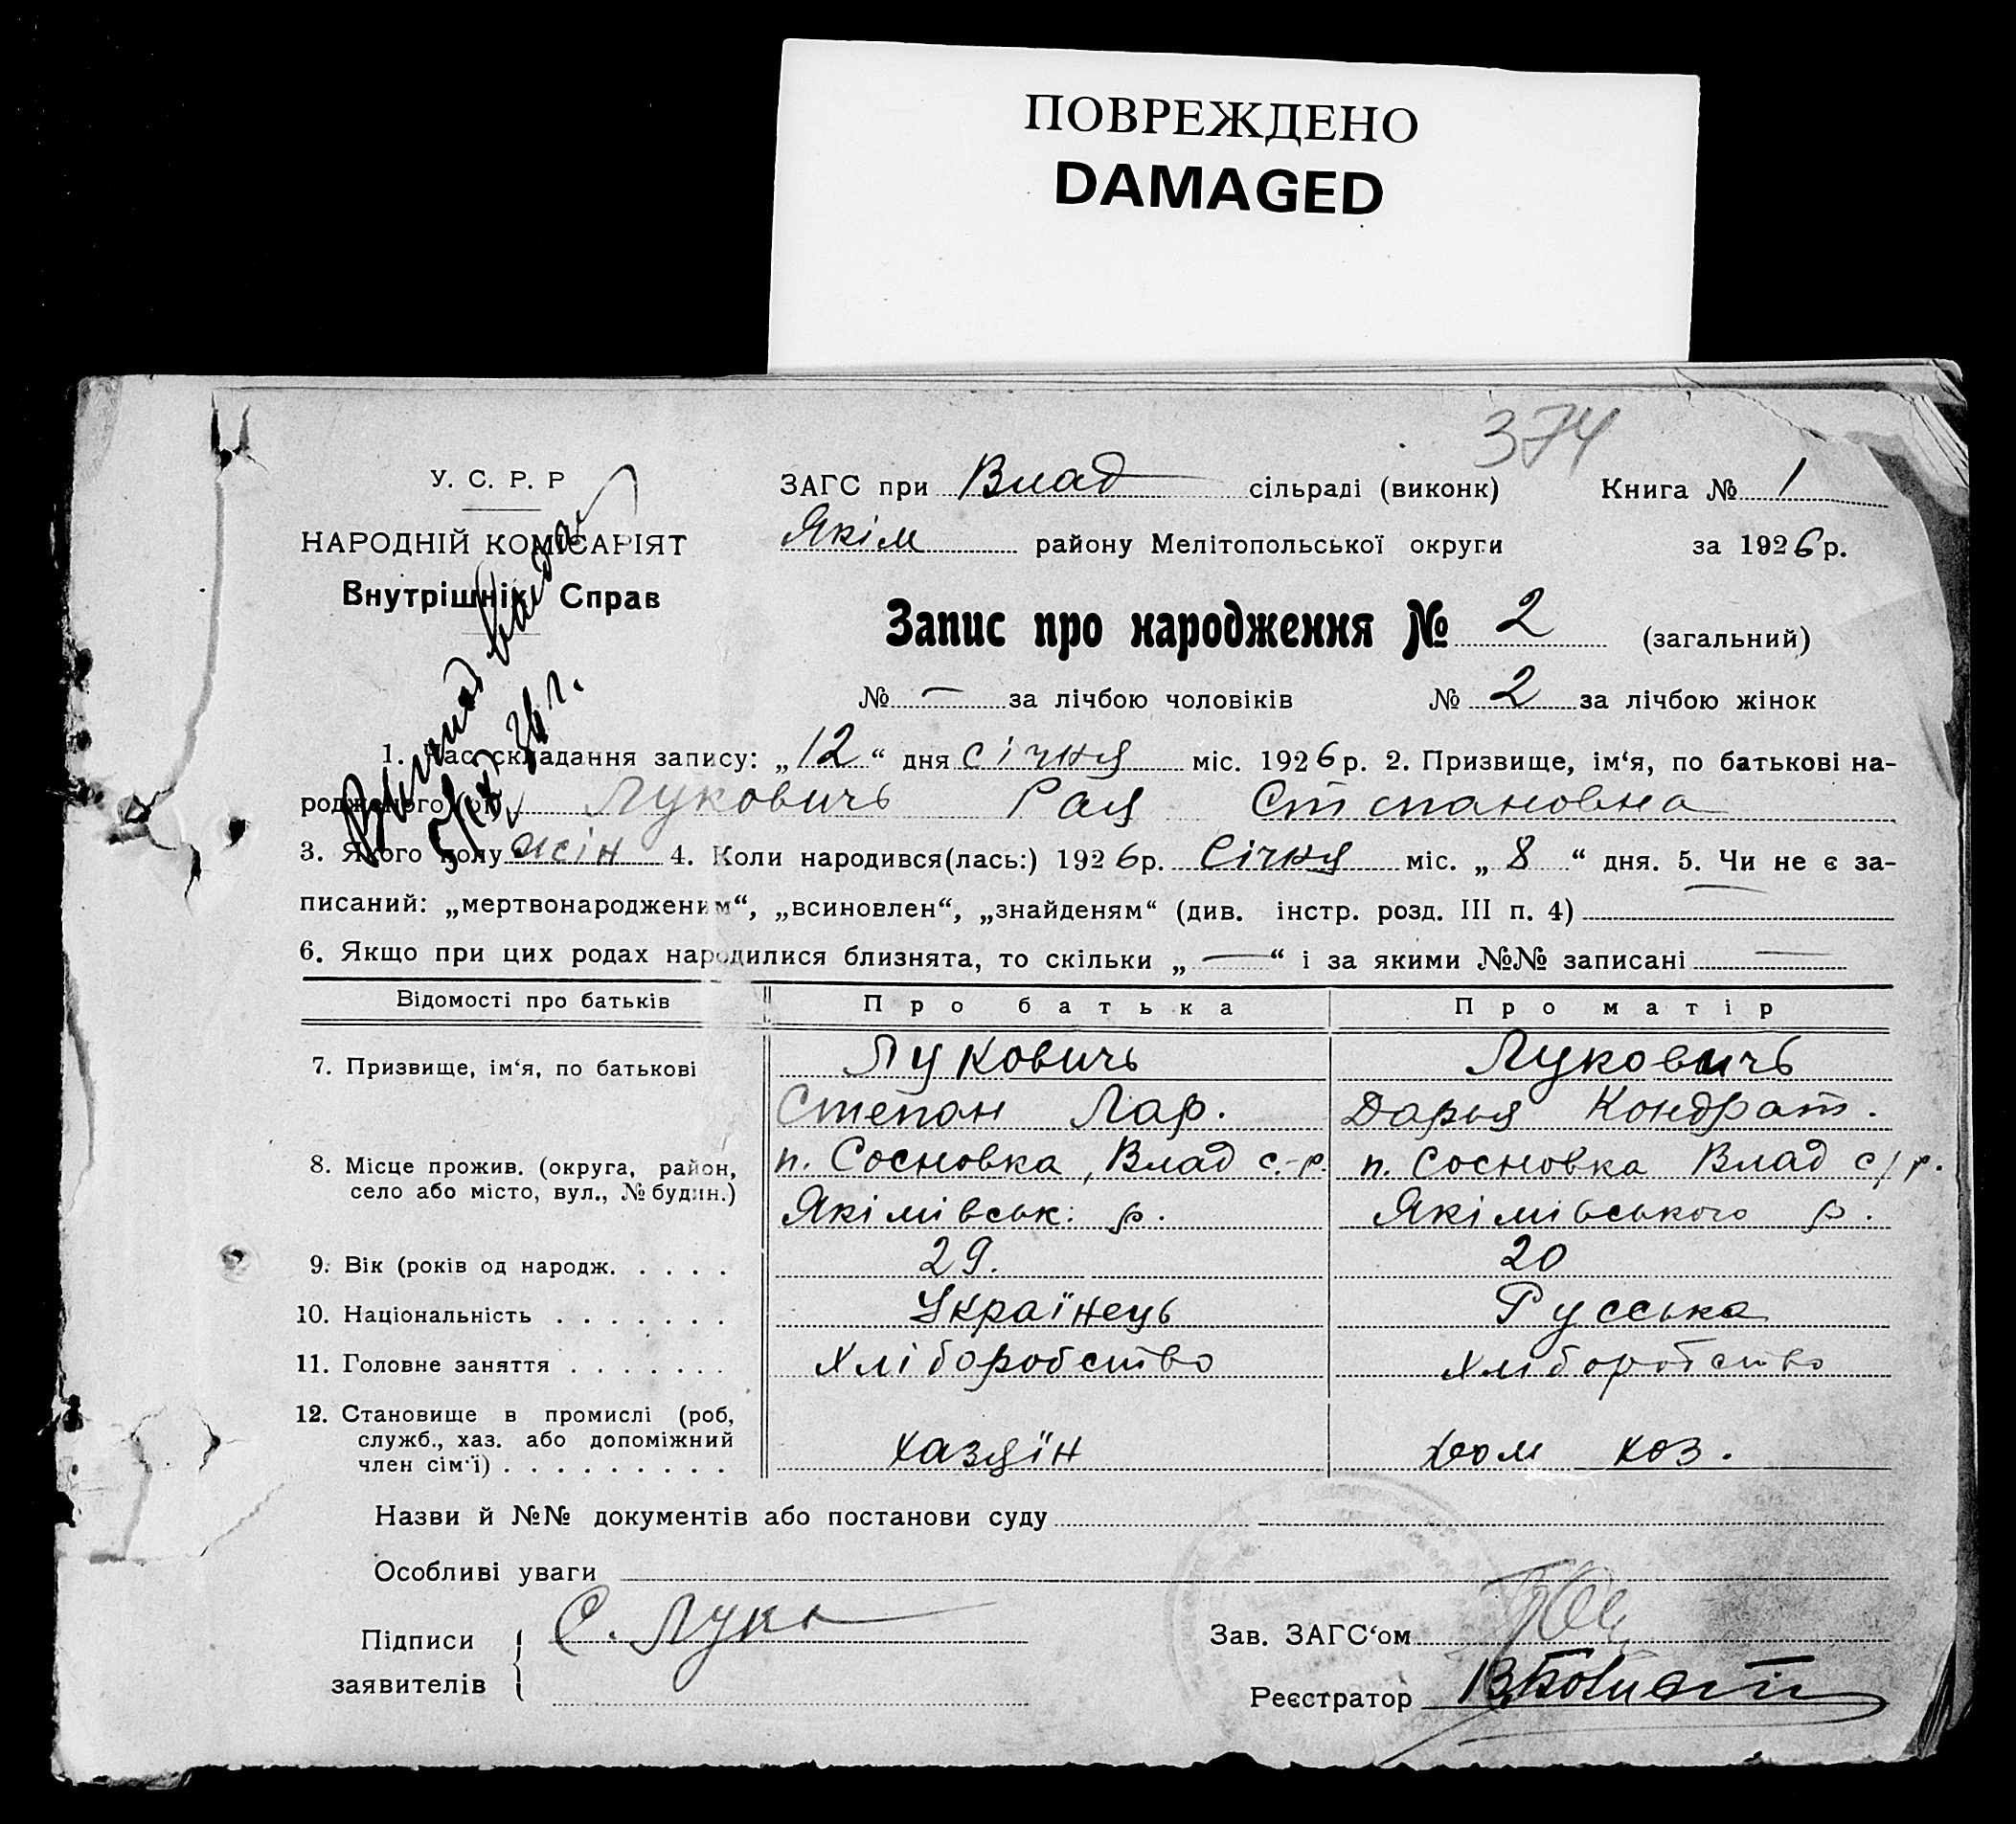 ПОВРЕЖДЕНО
DAMAGED
374
У. С. Р. Р
НАРОДНІЙ КОМІСАРІЯТ
Внутрішніх Справ
ЗАГС при Влад сільраді (виконк) Книга № 1
Якім району Мелітопольської округи за 1926 р.
Запис про народження № 2 (загальний)
№ — за лічбою чоловіків № 2 за лічбою жінок
1. Час складання запису: „12“ дня січня міс. 1926 р. 2. Призвище, ім‘я, по батькові на-
родженого Луковичь Рая Степановна
3. Якого полу жін 4. Коли народився(лась:) 1926 р. Січня міс. „8“ дня. 5. Чи не є за-
писаний: „мертвонародженим“, „всиновлен“, „знайденям“ (див. інстр. розд. III п. 4) —
6. Якщо при цих родах народилися близнята, то скільки „—“ і за якими №№ записані —
Відомості про батьків Про батька Про матір
7. Призвище, ім‘я, по батькові Луковичь Луковичь
Степан Лар. Дарья Кондрат.
8. Місце прожив. (округа, район, п. Сосновка, Влад с.-р. п. Сосновка Влад с/р.
село або місто, вул., № будин.) Якімівськ. р. Якімівського р.
9. Вік (років од народж. 29. 20
10. Національність Українець Русська
11. Головне заняття Хліборобство хліборобство
12. Становище в промислі (роб,
служб., хаз. або допоміжний
член сім‘ї) хазяїн дом хоз.
Назви й №№ документів або постанови суду
Особливі уваги
Підписи С. Лук
заявителів
Зав. ЗАГС‘ом
Реєстратор